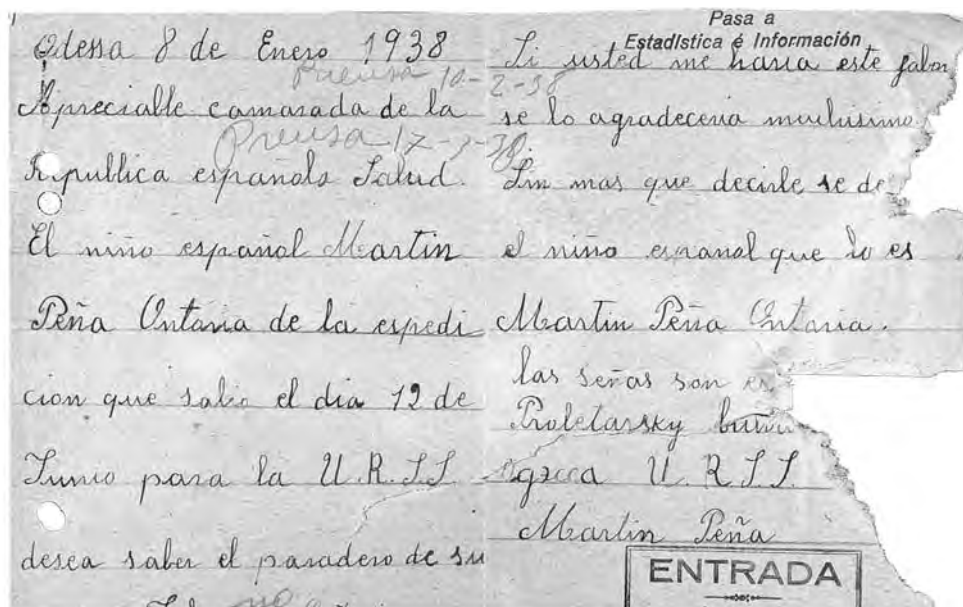 Odessa 8 de Enero 1938
Prensa 10-2-38
Apreciable camarada de la
Prensa 17-2-38
Republica española Salud.
El niño español Martin
Peña Ontaria de la espedi
cion que salio el dia 12 de
Junio para la U.R.S.S
desea saber el paradero de su
Pasa a
Estadística é Información
Si usted me haria este fabor
se lo agradeceria muchisimo.
Sin mas que decirle se de
el niño espanol que lo es
Martin Peña Ontaria.
las señas son es
Proletarsky
U.R.S.S.
Martin Peña
ENTRADA